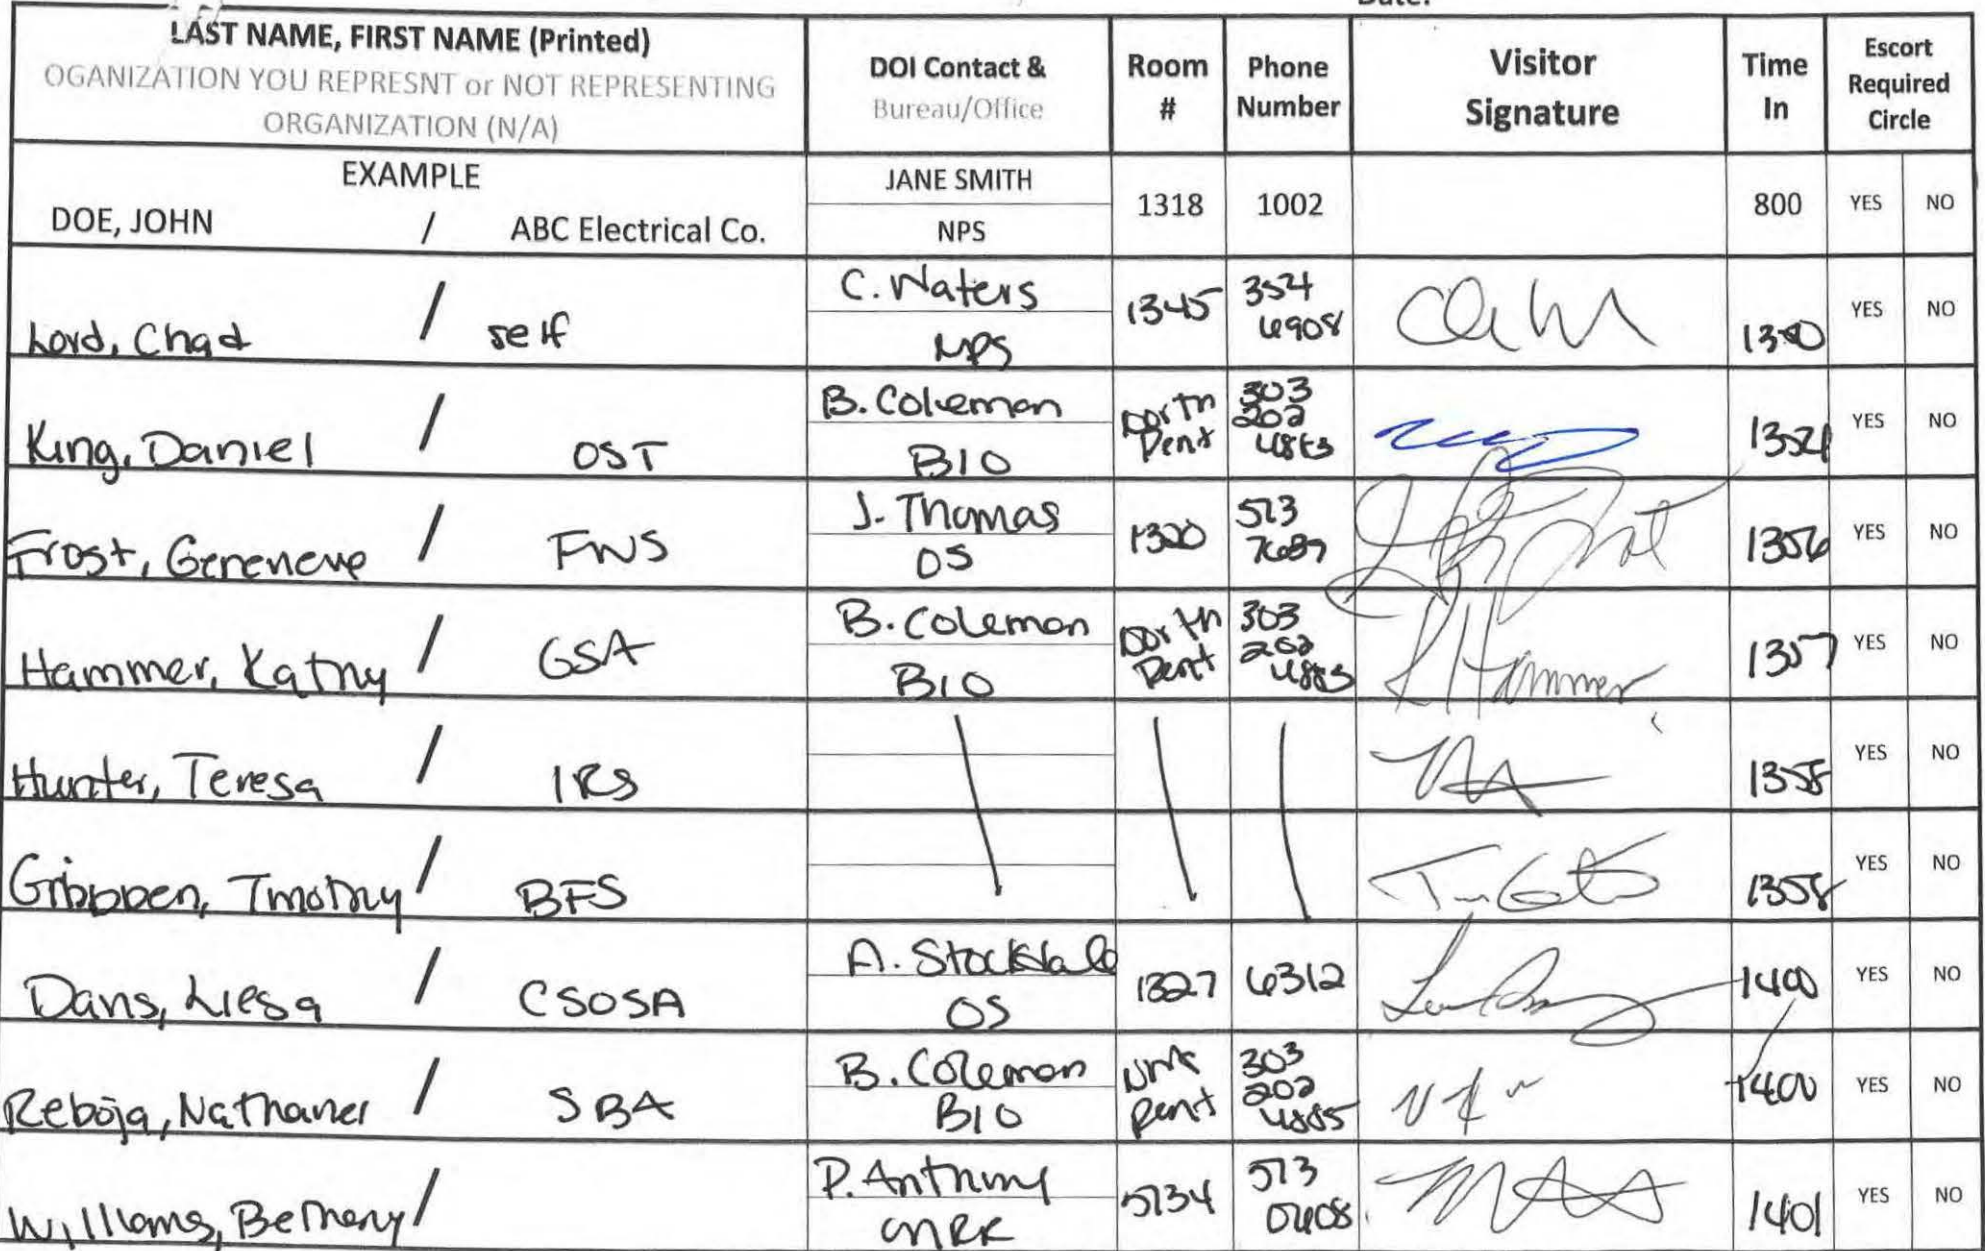 Date:
LAST NAME, FIRST NAME (Printed)
OGANIZATION YOU REPRESNT or NOT REPRESENTING
ORGANIZATION (N/A)
DOI Contact &
Bureau/Office
Room
#
Phone
Number
Visitor
Signature
Time
In
Escort
Required
Circle
EXAMPLE
DOE, JOHN / ABC Electrical Co.
JANE SMITH
NPS
1318 1002 800 YES NO
Lord, Chad / self
C. Waters
NPS
1345
354
6908
YES NO
King, Daniel / OST
B. Coleman
BIO
North
Pent
303
202
1354
YES NO
Frost, Genevieve / FWS
J. Thomas
OS
1320
513
7689
1356
YES NO
Hammer, Kathy / GSA
B. Coleman
BIO
North
Pent
303
202
4885
K Hammer
1357
YES NO
Hunter, Teresa / IRS
1358
YES NO
Gribben, Timothy / BFS
1358
YES NO
Davis, Liesa / CSOSA
A. Stockdale
OS
1327 6312
1400
YES NO
Reboja, Nathaniel / SBA
B. Coleman
BIO
Pent
303
202
4885
1400
YES NO
Williams, Bethany /
P. Anthony
5134
513
0608
1401
YES NO